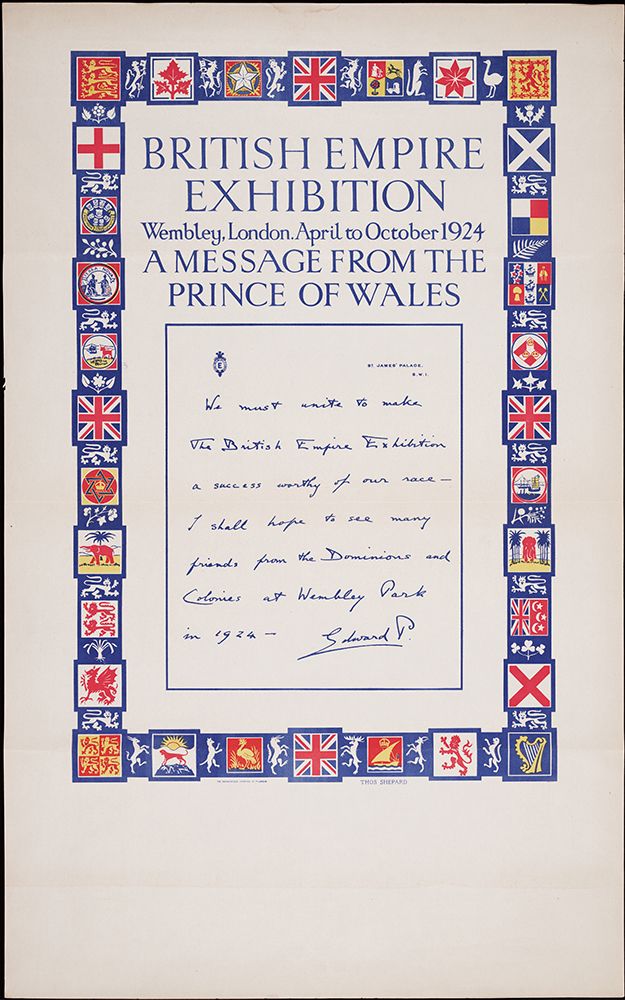 BRITISH EMPIRE
EXHIBITION
Wembley, London. April to October 1924
A MESSAGE FROM THE
PRINCE OF WALES
E
ST. JAMES' PALACE,
S.W.1.
We must unite to make
The British Empire Exhibition
a success worthy of our race —
I shall hope to see many
friends from the Dominions and
Colonies at Wembley Park
in 1924 — Edward P.
THOS SHEPARD